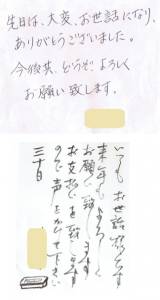 先日は、大変、お世話になり、
ありがとうございました。
今後共、どうぞ、よろしく
お願い致します。
いつもお世話様です
来年もよろしく
お願い致します
お支払を致します
ので声をかけて下さい
三十日